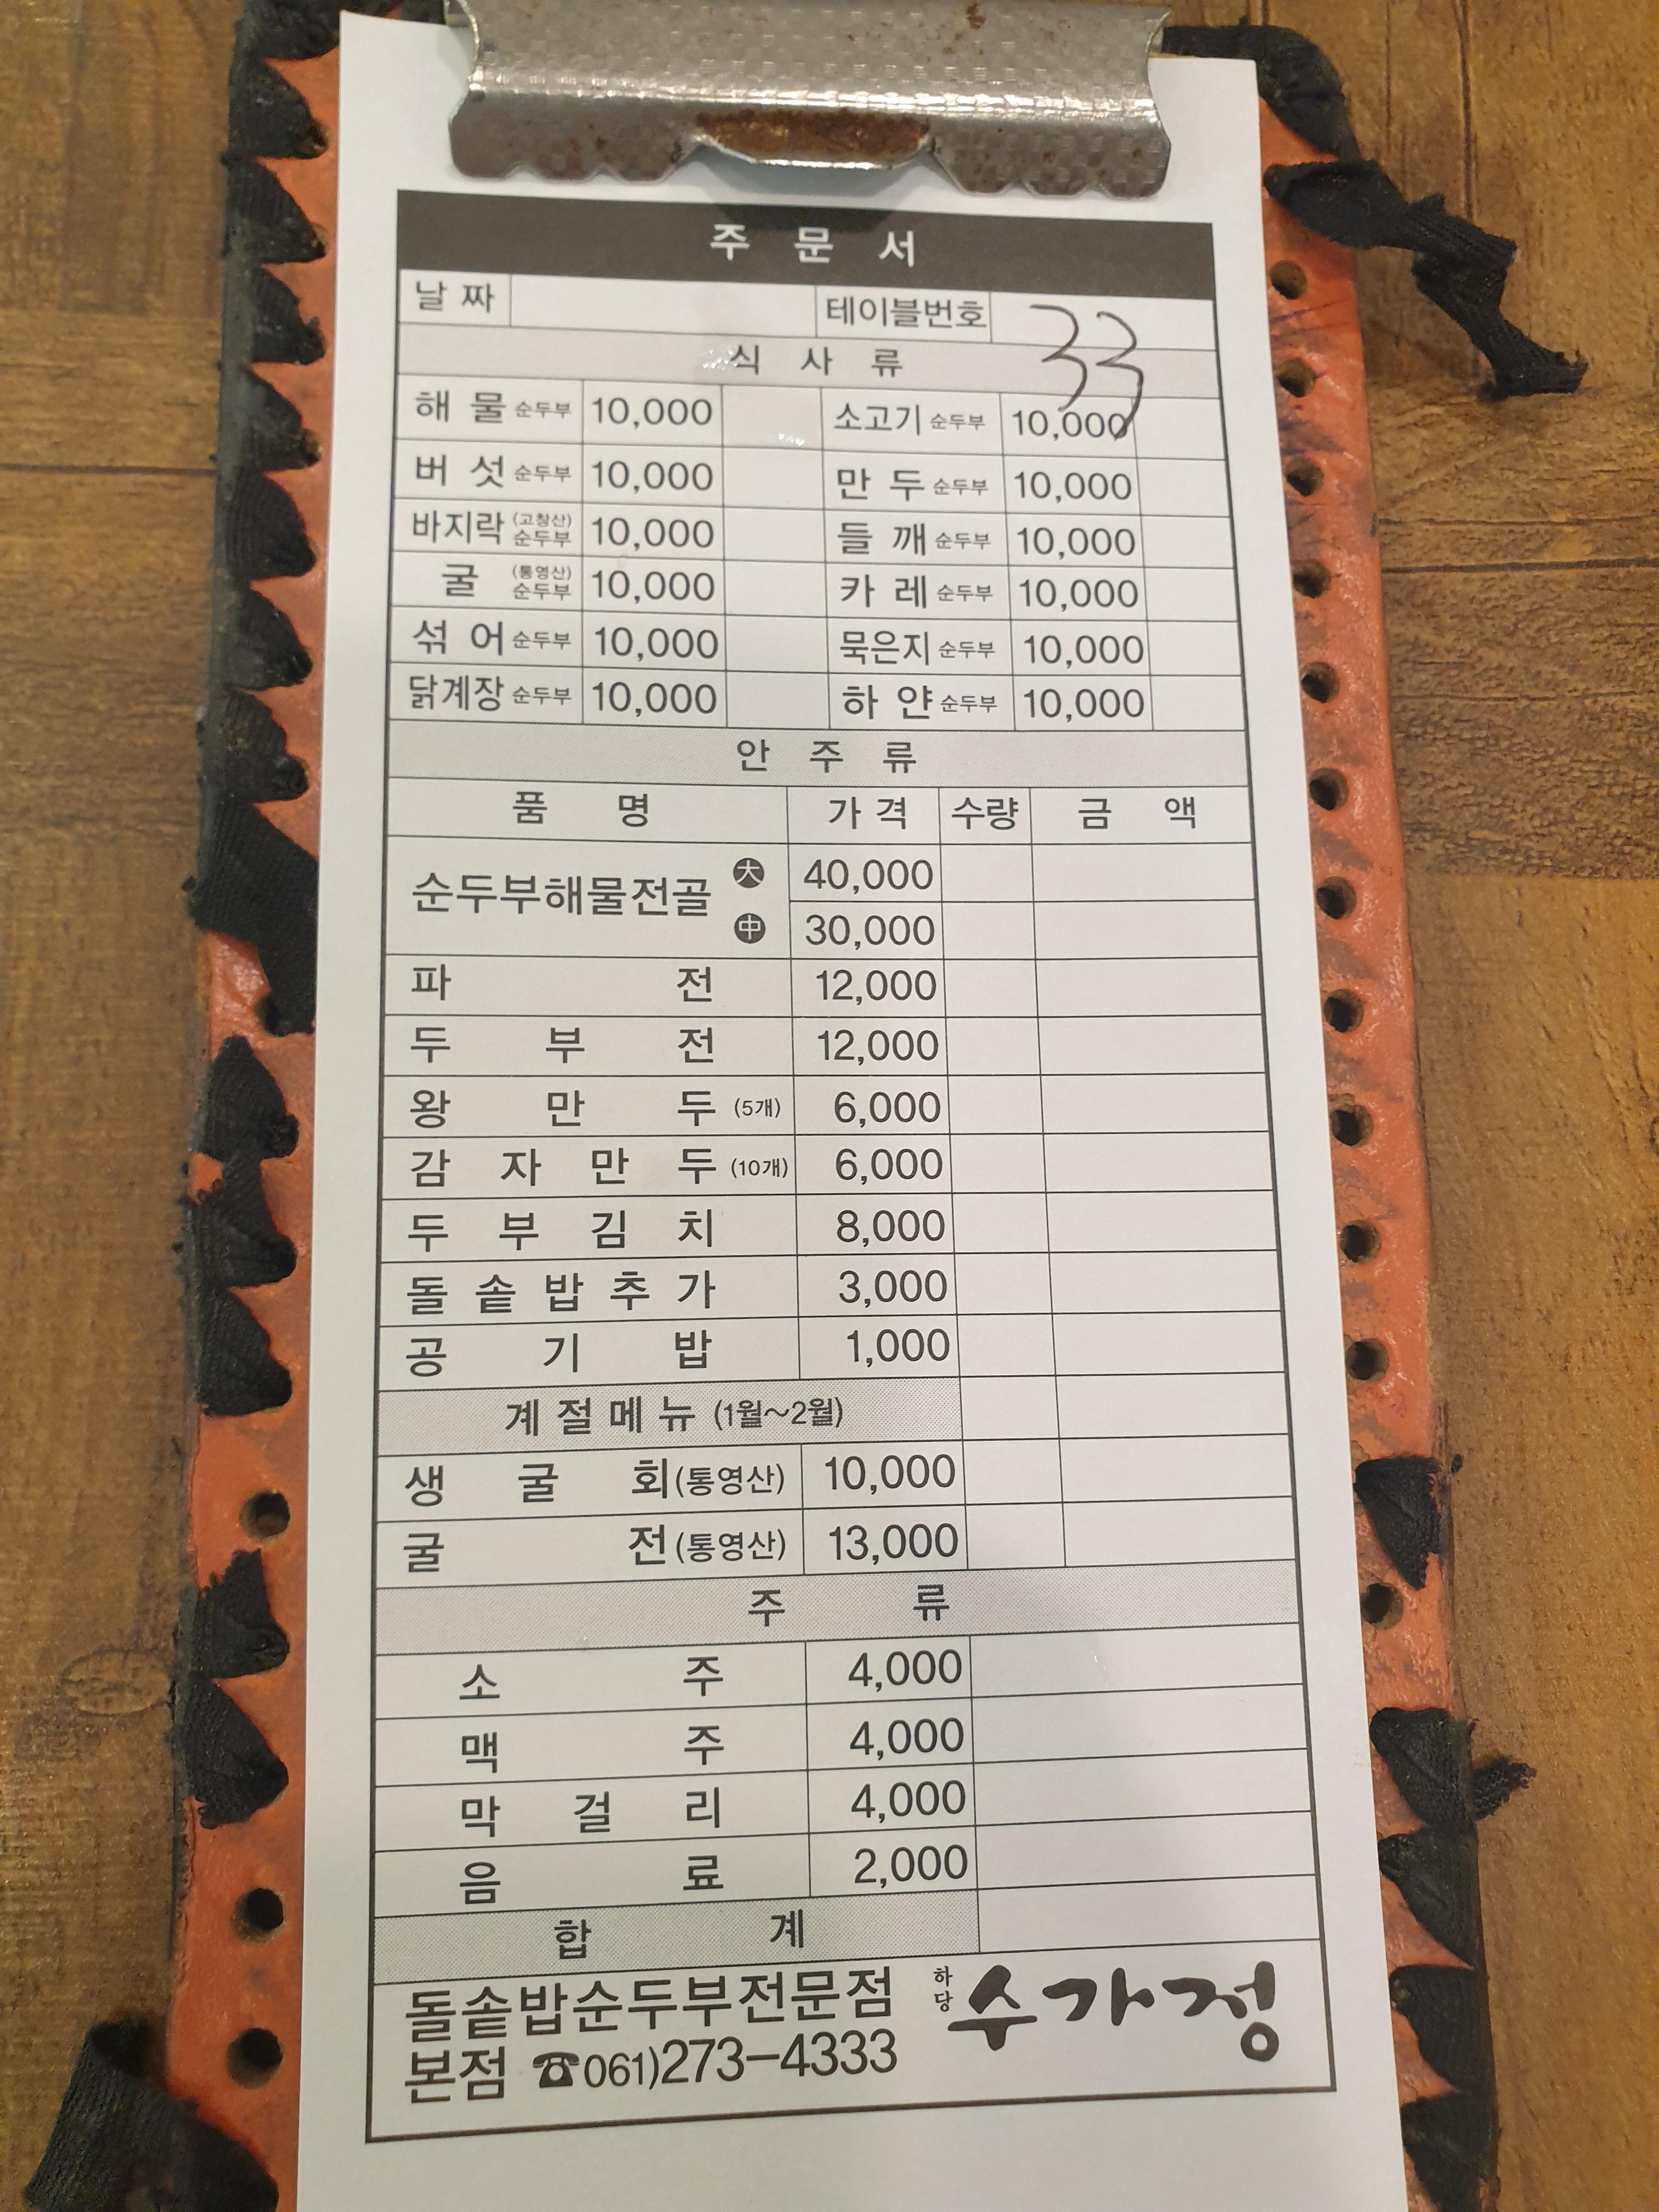 주문서
날짜 테이블번호 33
식사류
해물 순두부 10,000 소고기 순두부 10,000
버섯 순두부 10,000 만두 순두부 10,000
바지락 (고창산) 순두부 10,000 들깨 순두부 10,000
굴 (통영산) 순두부 10,000 카레 순두부 10,000
섞어 순두부 10,000 묵은지 순두부 10,000
닭계장 순두부 10,000 하얀 순두부 10,000
안주류
품명 가격 수량 금액
순두부해물전골 大 40,000
中 30,000
파전 12,000
두부전 12,000
왕만두 (5개) 6,000
감자만두 (10개) 6,000
두부김치 8,000
돌솥밥추가 3,000
공기밥 1,000
계절메뉴 (1월~2월)
생굴회 (통영산) 10,000
굴전 (통영산) 13,000
주류
소주 4,000
맥주 4,000
막걸리 4,000
음료 2,000
합계
돌솥밥순두부전문점 하당 수가정
본점 ☎061)273-4333